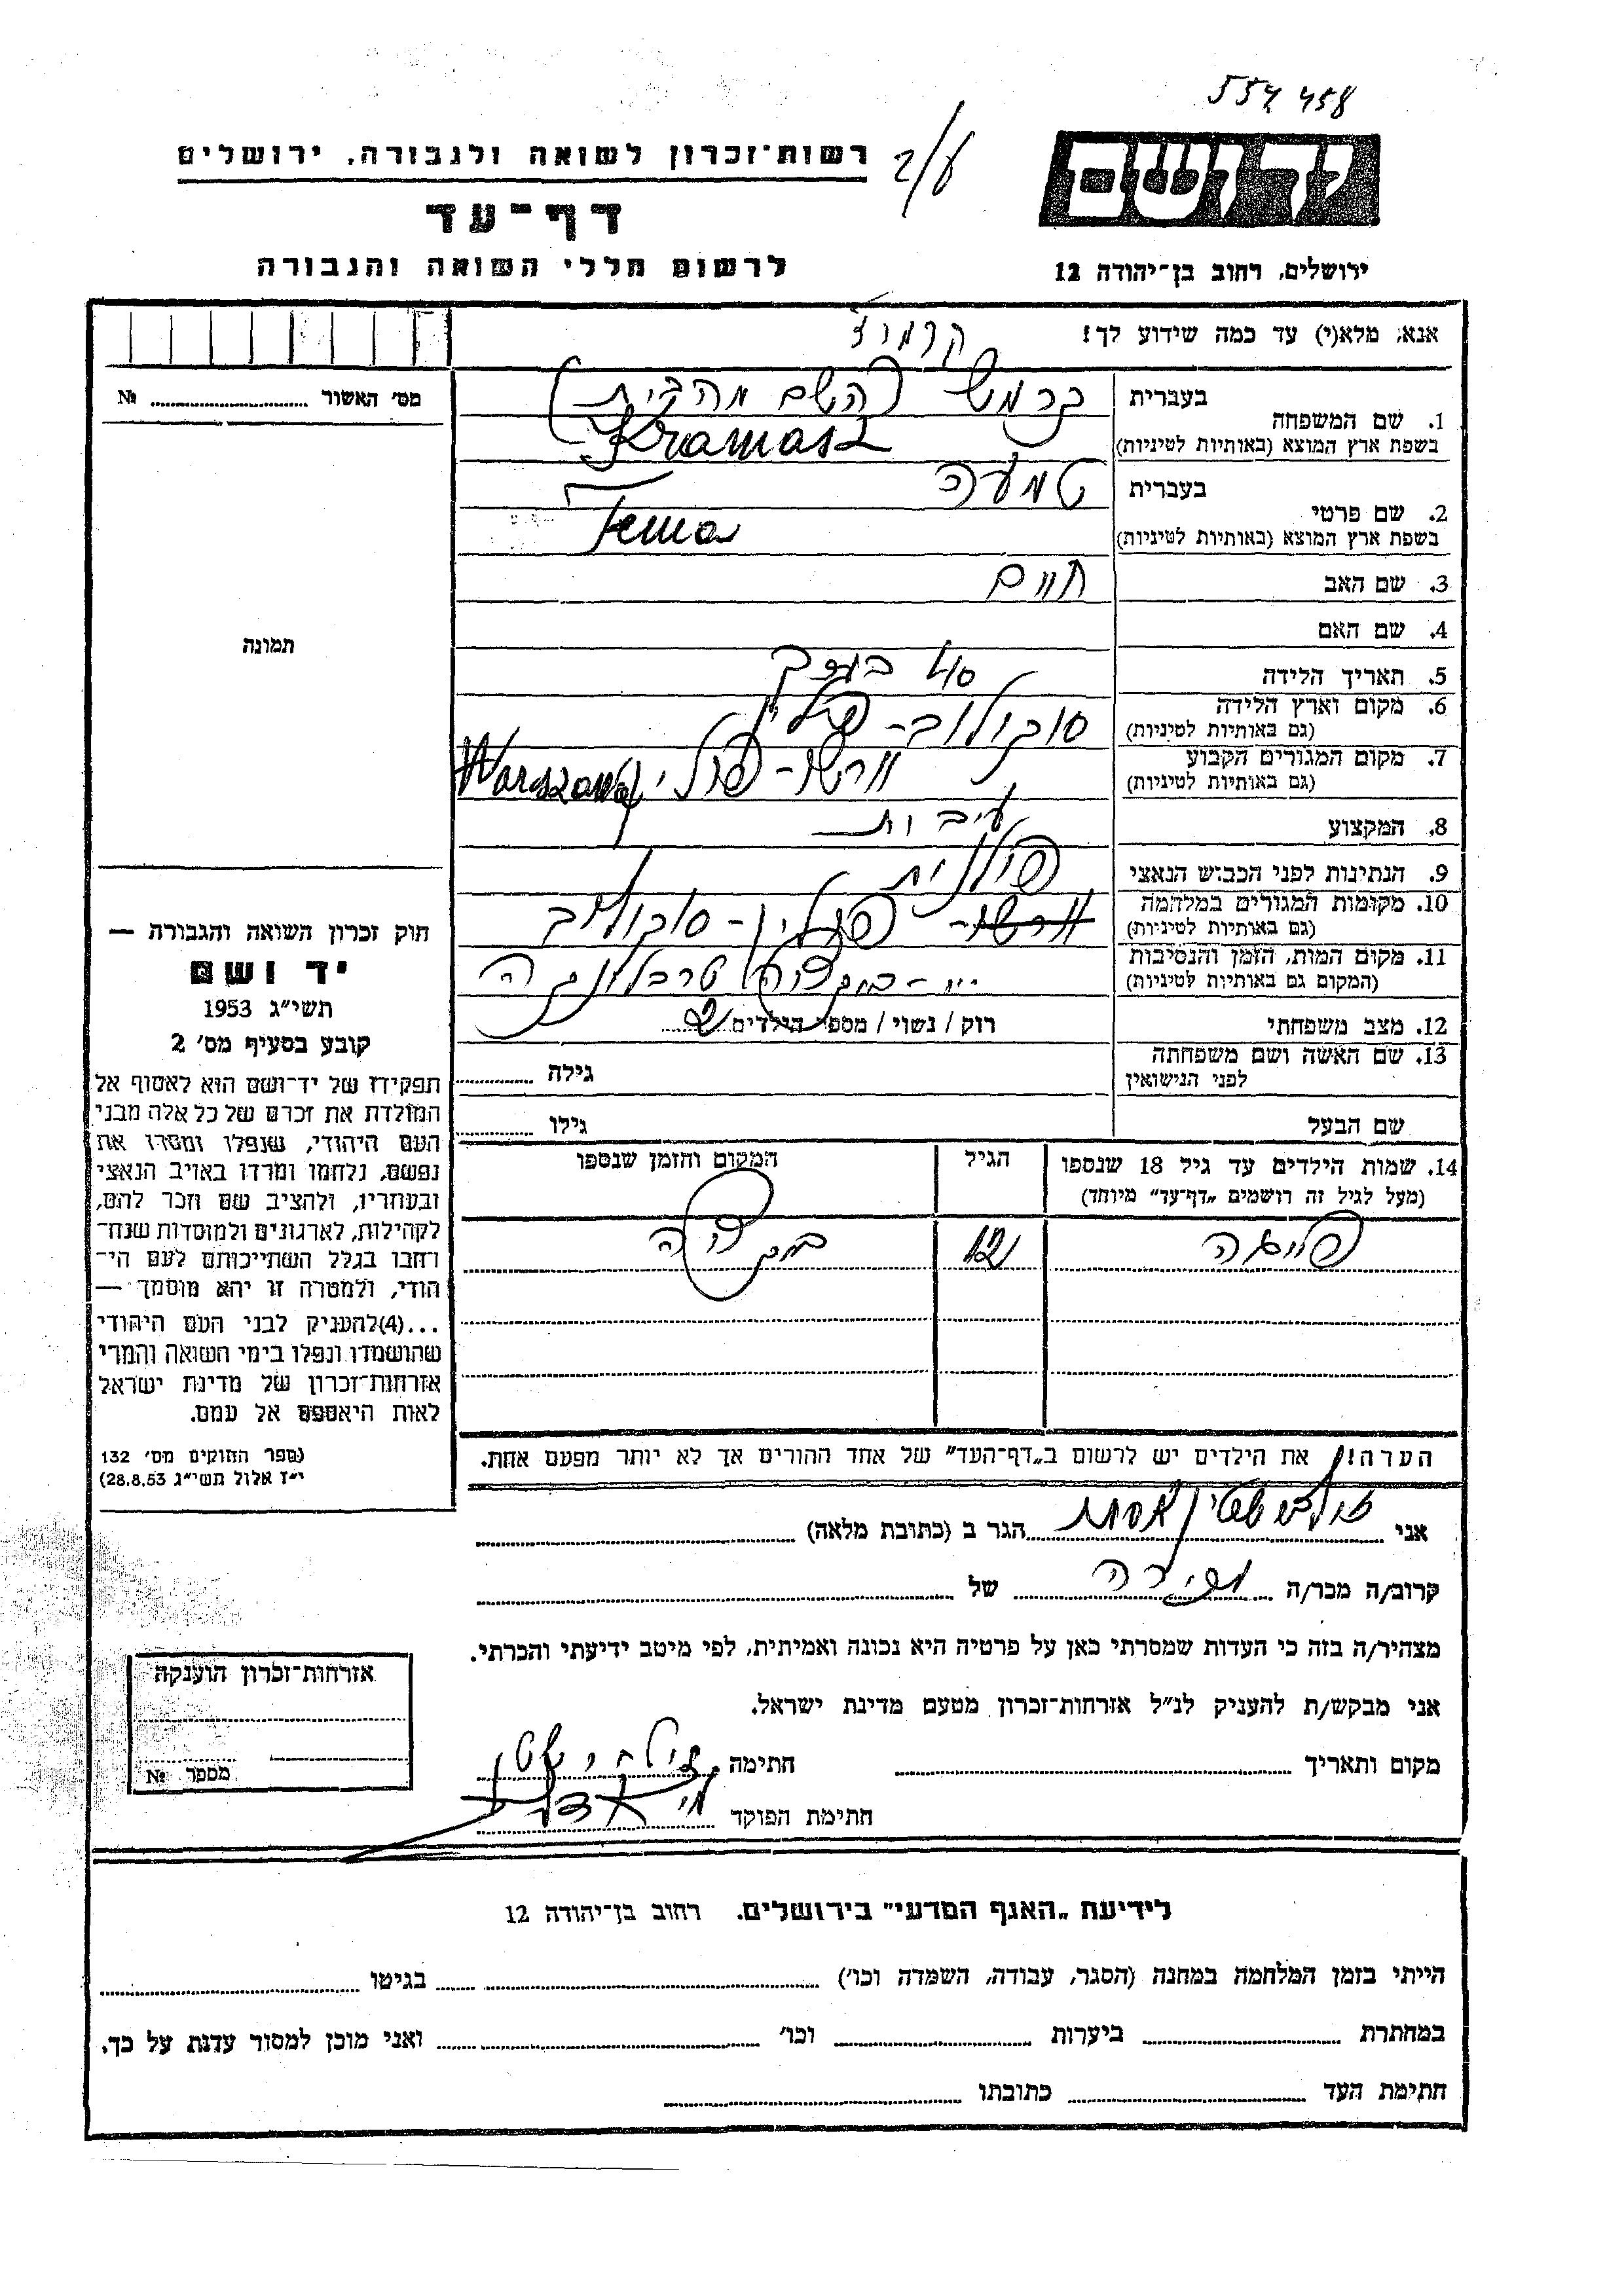 554458
ידושם
רשות־זכרון לשואה ולגבורה, ירושלים
ירושלים, רחוב בן־יהודה 12
דף־עד
לרשום חללי השואה והגבורה
אנא, מלא(י) עד כמה שידוע לך!
קרמוז
מס' האשור № 
1. שם המשפחה
בעברית כרמש (השם מהבית)
בשפת ארץ המוצא (באותיות לטיניות) Kramasz
2. שם פרטי
בעברית טמעה
בשפת ארץ המוצא (באותיות לטיניות) Tema
3. שם האב חיים
4. שם האם
תמונה
5. תאריך הלידה 40
6. מקום וארץ הלידה
(גם באותיות לטיניות) סוקולוב - פולין
7. מקום המגורים הקבוע
(גם באותיות לטיניות) ורשו - פולין Warszawa
8. המקצוע
9. הנתינות לפני הכבוש הנאצי פולנית
10. מקומות המגורים במלחמה
(גם באותיות לטיניות) ורשו - פולין - סוקולוב
11. מקום המות, הזמן והנסיבות
(המקום גם באותיות לטיניות) טרבלינקה
12. מצב משפחתי רוק / נשוי / מספר הילדים 2
13. שם האשה ושם משפחתה
לפני הנישואין
גילה
שם הבעל גילו
14. שמות הילדים עד גיל 18 שנספו
(מעל לגיל זה רושמים „דף־עד” מיוחד)
הגיל
המקום והזמן שנספו
12
הערה! את הילדים יש לרשום ב„דף־העד” של אחד ההורים אך לא יותר מפעם אחת.
חוק זכרון השואה והגבורה —
יד ושם
תשי״ג 1953
קובע בסעיף מס' 2
תפקידו של יד־ושם הוא לאסוף אל
המולדת את זכרם של כל אלה מבני
העם היהודי, שנפלו ומסרו את
נפשם, נלחמו ומרדו באויב הנאצי
ובעוזריו, ולהציב שם וזכר להם,
לקהילות, לארגונים ולמוסדות שנח־
רבו בגלל השתייכותם לעם הי־
הודי, ולמטרה זו יהא מוסמך —
...(4) להעניק לבני העם היהודי
שהושמדו ונפלו בימי השואה והמרי
אזרחות־זכרון של מדינת ישראל
לאות היאספם אל עמם.
(ספר החוקים מס' 132
י״ז אלול תשי״ג 28.8.53)
אני אסתר הגר ב (כתובת מלאה)
קרוב/ה מכר/ה מכירה של
מצהיר/ה בזה כי העדות שמסרתי כאן על פרטיה היא נכונה ואמיתית, לפי מיטב ידיעתי והכרתי.
אני מבקש/ת להעניק לנ״ל אזרחות־זכרון מטעם מדינת ישראל.
מקום ותאריך חתימה
חתימת הפוקד
אזרחות־זכרון הוענקה
מספר №
לידיעת „האגף המדעי” בירושלים, רחוב בן־יהודה 12
הייתי בזמן המלחמה במחנה (הסגר, עבודה, השמדה וכו') בגיטו
במחתרת ביערות וכו' ואני מוכן למסור עדות על כך.
חתימת העד כתובתו